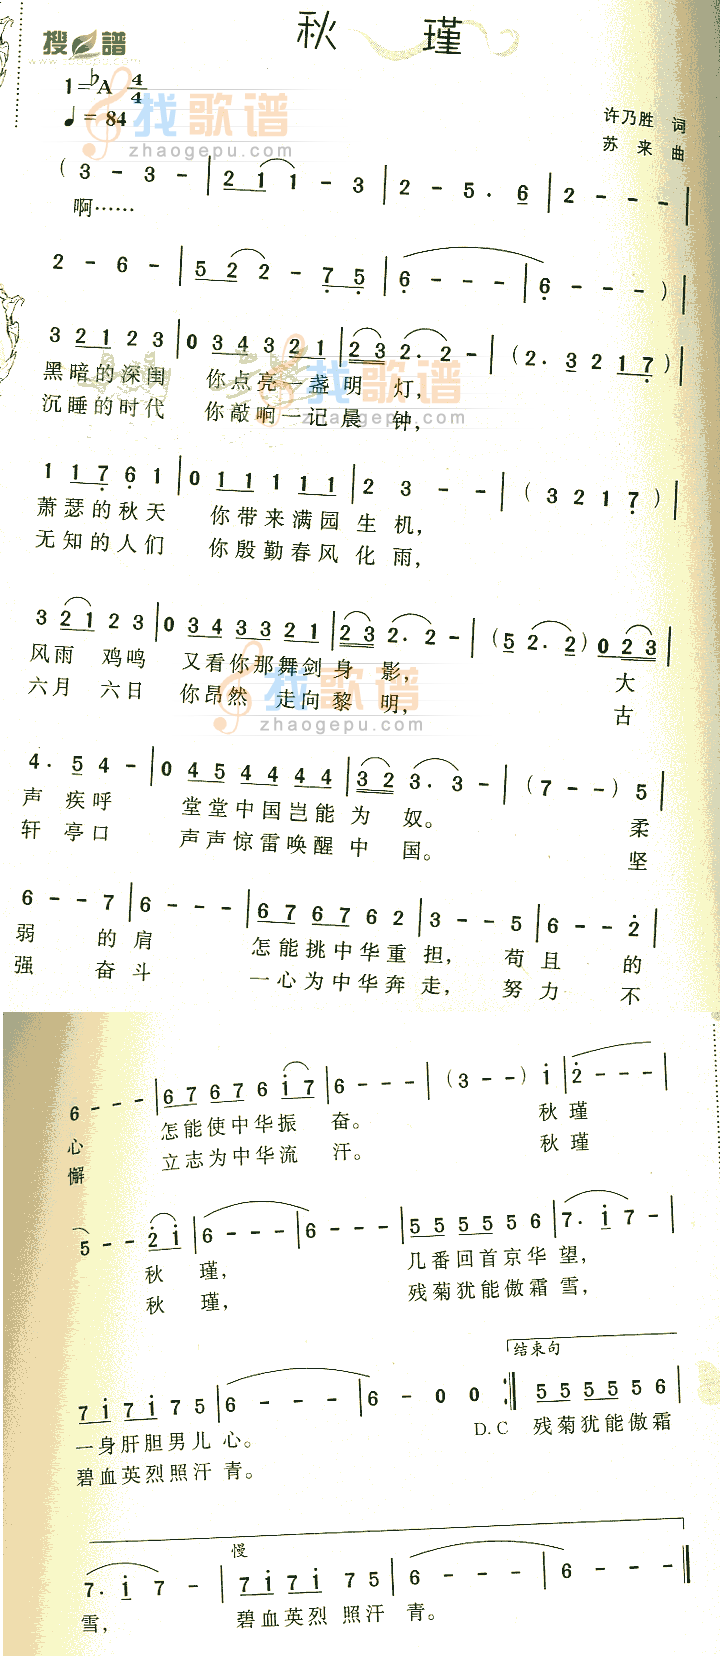 秋 瑾
搜 谱
1=♭A 4/4
♩= 84
找歌谱
zhaogepu.com
许乃胜 词
苏 来 曲
( 3 - 3 - | 2 1 1 - 3 | 2 - 5 . 6 | 2 - - - |
啊……
2 - 6 - | 5 2 2 - 7 5 | 6 - - - | 6 - - - ) |
3 2 1 2 3 | 0 3 4 3 2 1 | 2 3 2 . 2 - | ( 2 . 3 2 1 7 ) |
黑暗的深闺 你点亮一盏明 灯,
沉睡的时代 你敲响一记晨 钟,
找歌谱
zhaogepu.com
1 1 7 6 1 | 0 1 1 1 1 1 1 | 2 3 - - | ( 3 2 1 7 ) |
萧瑟的秋天 你带来满园生 机,
无知的人们 你殷勤春风化 雨,
3 2 1 2 3 | 0 3 4 3 3 2 1 | 2 3 2 . 2 - | ( 5 2 . 2 ) 0 2 3 |
风雨 鸡鸣 又看你那舞剑身 影, 大
六月 六日 你昂然 走向黎 明, 古
找歌谱
zhaogepu.com
4 . 5 4 - | 0 4 5 4 4 4 4 | 3 2 3 . 3 - | ( 7 - - ) 5 |
声 疾呼 堂堂中国岂能为 奴。 柔
轩 亭口 声声惊雷唤醒中 国。 坚
6 - - 7 | 6 - - - | 6 7 6 7 6 2 | 3 - - 5 | 6 - - 2 |
弱 的肩 怎能挑中华重 担, 苟且 的
强 奋斗 一心为中华奔 走, 努力 不
6 - - - | 6 7 6 7 6 i 7 | 6 - - - | ( 3 - - ) i | 2 - - - |
心 怎能使中华振 奋。 秋瑾
懈 立志为中华流 汗。 秋瑾
5 - - 2 i | 6 - - - | 6 - - - | 5 5 5 5 5 6 | 7 . i 7 - |
秋 瑾, 几番回首京华 望,
秋 瑾, 残菊犹能傲霜 雪,
结束句
7 i 7 i 7 5 | 6 - - - | 6 - 0 0 :‖ 5 5 5 5 5 6 |
一身肝胆男儿 心。 D.C 残菊犹能傲霜
碧血英烈照汗 青。
慢
7 . i 7 - | 7 i 7 i 7 5 | 6 - - - | 6 - - - ‖
雪, 碧血英烈 照汗 青。